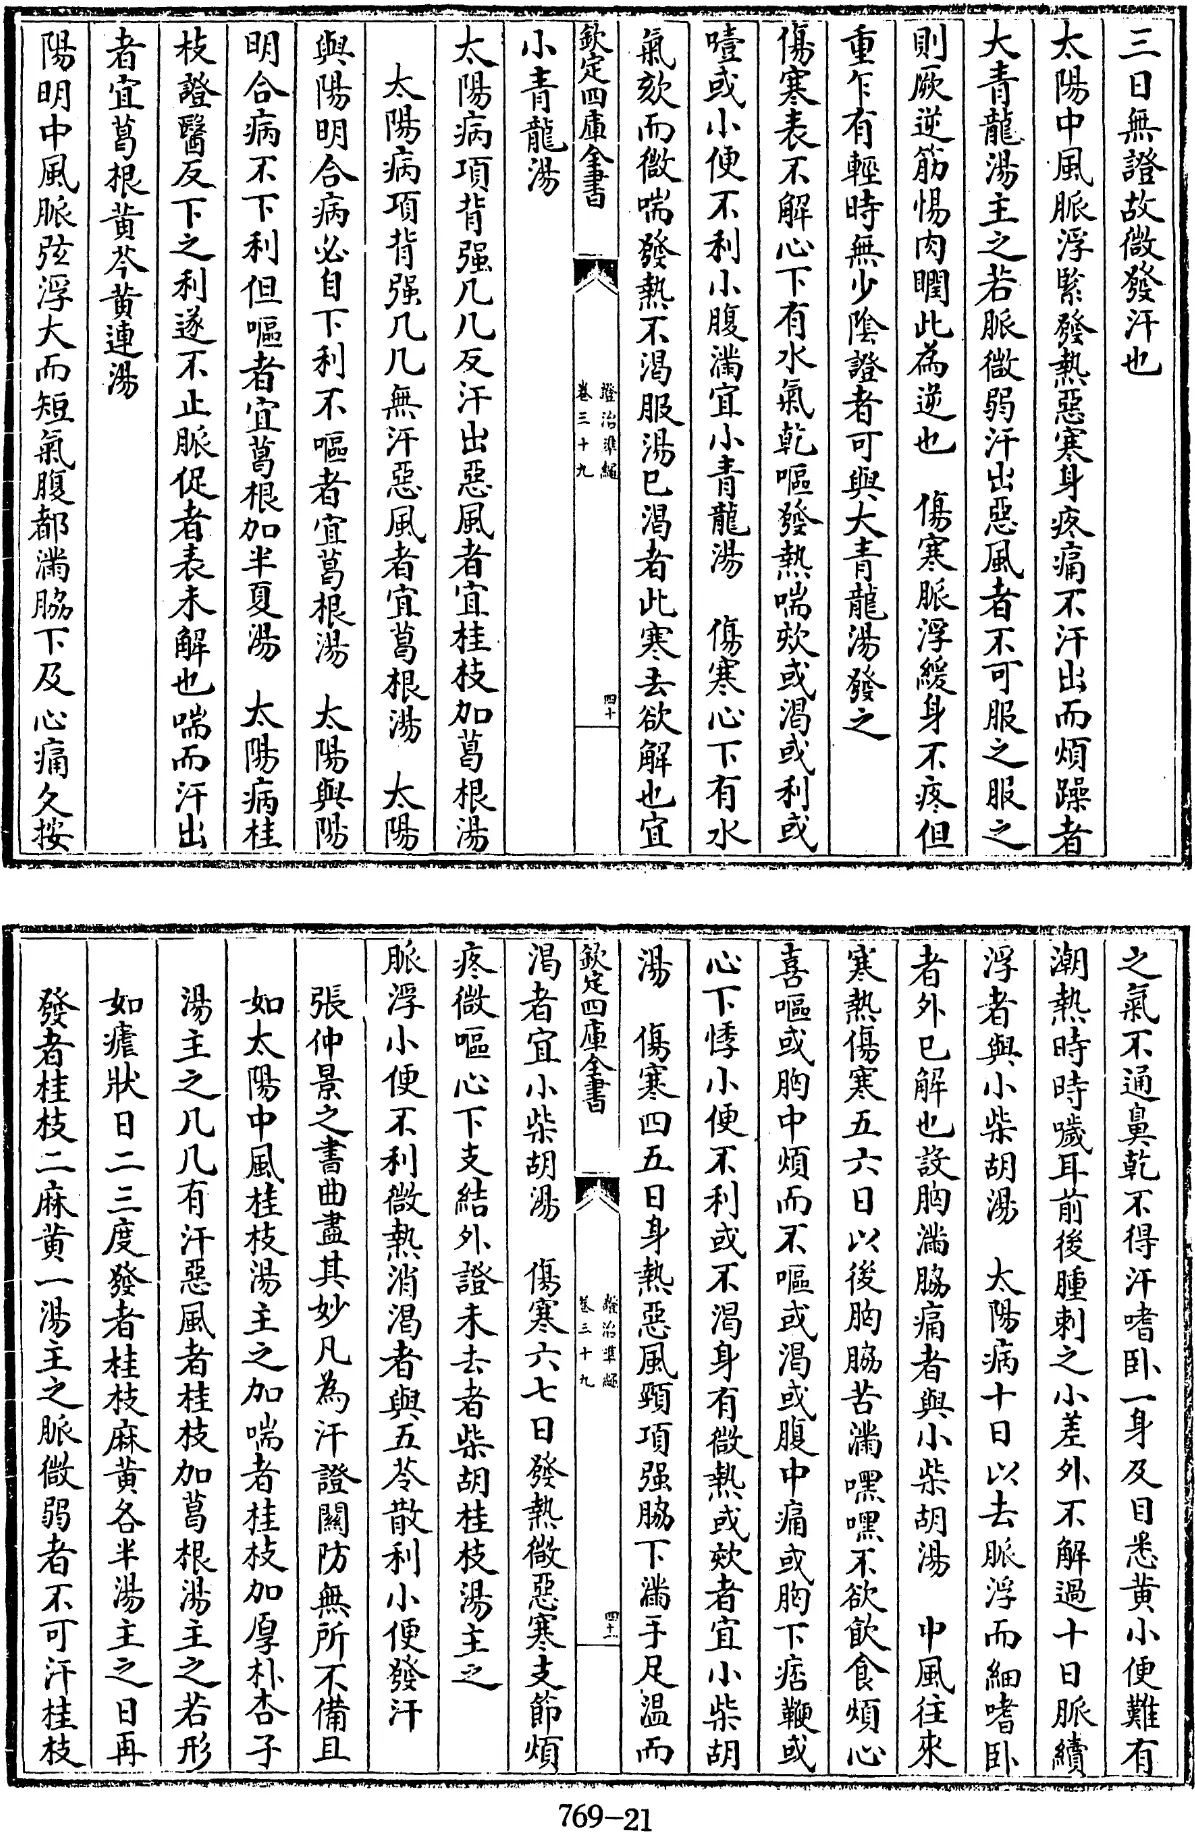 三日無證故微發汗也
太陽中風脈浮緊發熱惡寒身疼痛不汗出而煩躁者
大青龍湯主之若脈微弱汗出惡風者不可服之服之
則厥逆筋惕肉瞤此為逆也　傷寒脈浮緩身不疼但
重乍有輕時無少陰證者可與大青龍湯發之
傷寒表不解心下有水氣乾嘔發熱喘欬或渴或利或
噎或小便不利小腹滿宜小青龍湯　傷寒心下有水
氣欬而微喘發熱不渴服湯已渴者此寒去欲解也宜
欽定四庫全書
證治準繩
卷三十九
四十
小青龍湯
太陽病項背强几几反汗出惡風者宜桂枝加葛根湯
太陽病項背强几几無汗惡風者宜葛根湯　太陽
與陽明合病必自下利不嘔者宜葛根湯　太陽與陽
明合病不下利但嘔者宜葛根加半夏湯　太陽病桂
枝證醫反下之利遂不止脈促者表未解也喘而汗出
者宜葛根黄芩黄連湯
陽明中風脈弦浮大而短氣腹都滿脇下及心痛久按
之氣不通鼻乾不得汗嗜卧一身及目悉黄小便難有
潮熱時時噦耳前後腫刺之小差外不解過十日脈續
浮者與小柴胡湯　太陽病十日以去脈浮而細嗜卧
者外已解也設胸滿脇痛者與小柴胡湯　中風往來
寒熱傷寒五六日以後胸脇苦滿嘿嘿不欲飲食煩心
喜嘔或胸中煩而不嘔或渴或腹中痛或胸下痞鞕或
心下悸小便不利或不渴身有微熱或欬者宜小柴胡
湯　傷寒四五日身熱惡風頸項强脇下滿手足温而
欽定四庫全書
證治準繩
卷三十九
四十一
渴者宜小柴胡湯　傷寒六七日發熱微惡寒支節煩
疼微嘔心下支結外證未去者柴胡桂枝湯主之
脈浮小便不利微熱消渴者與五苓散利小便發汗
張仲景之書曲盡其妙凡為汗證關防無所不備且
如太陽中風桂枝湯主之加喘者桂枝加厚朴杏子
湯主之几几有汗惡風者桂枝加葛根湯主之若形
如瘧狀日二三度發者桂枝麻黄各半湯主之日再
發者桂枝二麻黄一湯主之脈微弱者不可汗桂枝
769-21